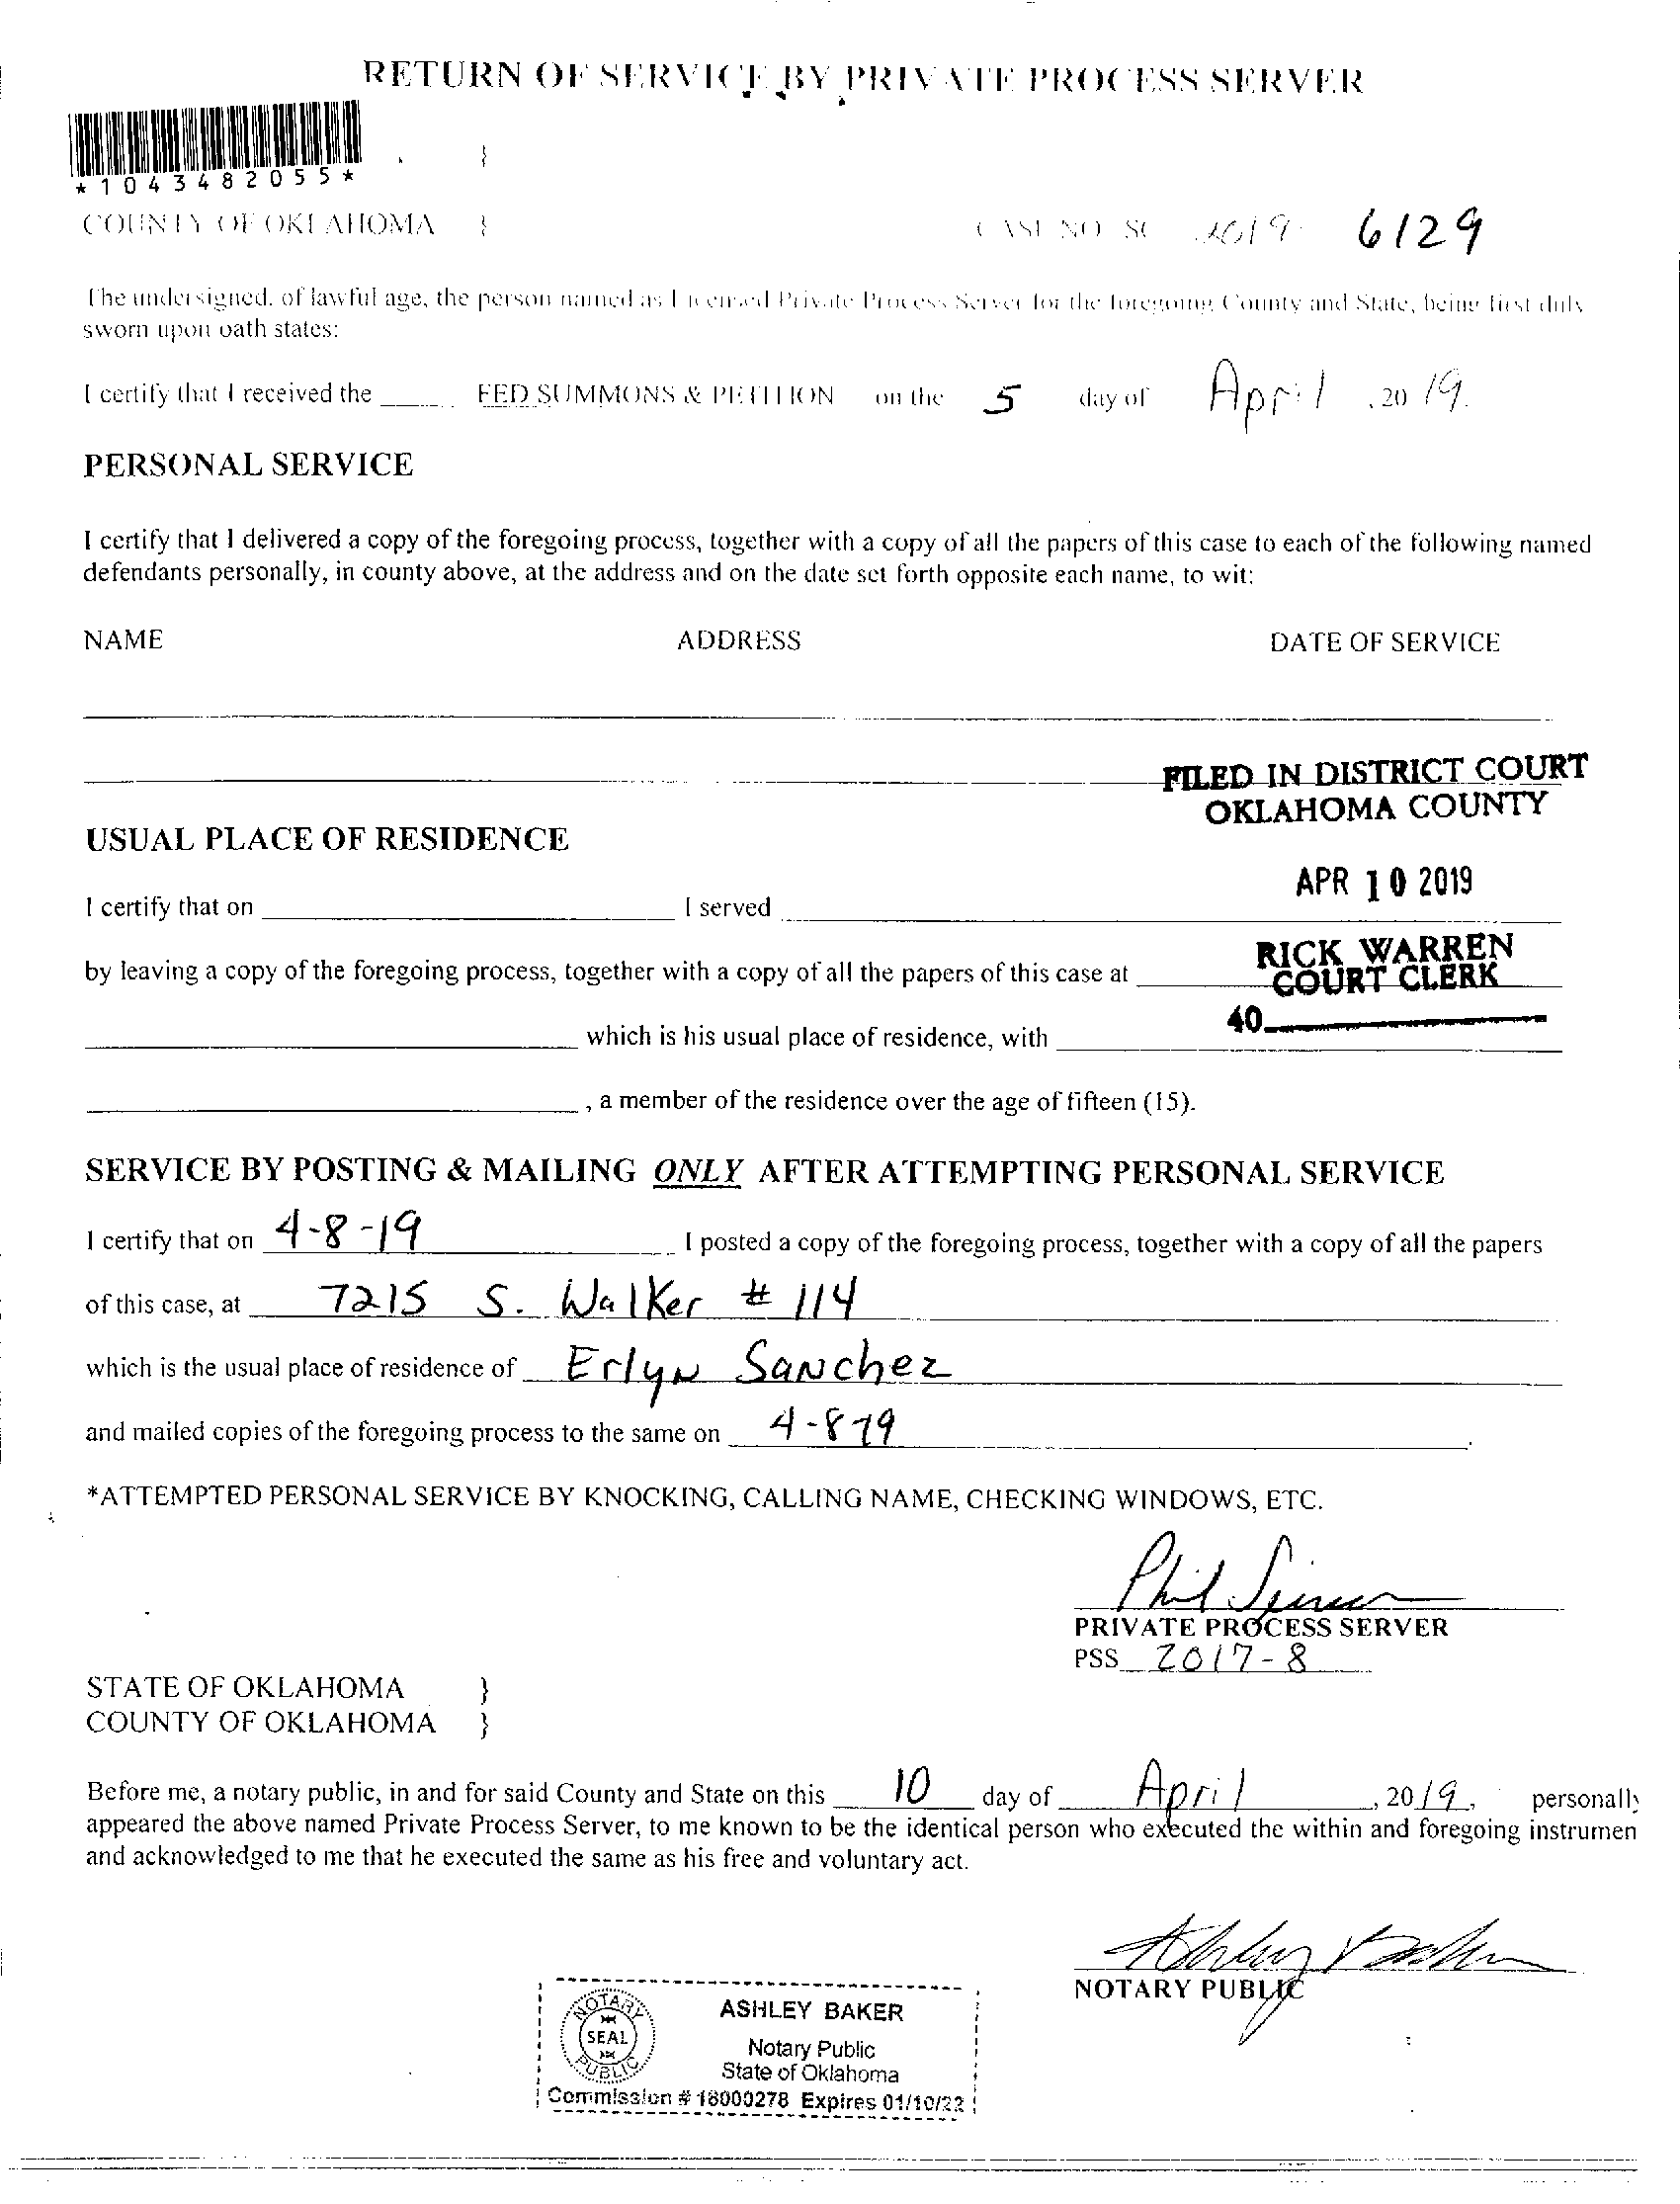 RETURN OF SERVICE BY PRIVATE PROCESS SERVER
}
*1043482055*
COUNTY OF OKLAHOMA }
CASE NO SC 2019 6129
The undersigned, of lawful age, the person named as Licensed Private Process Server for the foregoing County and State, being first duly
sworn upon oath states:
I certify that I received the ____ FED SUMMONS & PETITION on the 5 day of April , 20 19.
PERSONAL SERVICE
I certify that I delivered a copy of the foregoing process, together with a copy of all the papers of this case to each of the following named
defendants personally, in county above, at the address and on the date set forth opposite each name, to wit:
NAME ADDRESS DATE OF SERVICE
FILED IN DISTRICT COURT
OKLAHOMA COUNTY
USUAL PLACE OF RESIDENCE
APR 10 2019
I certify that on ____ I served ____
RICK WARREN
by leaving a copy of the foregoing process, together with a copy of all the papers of this case at ____
COURT CLERK
40____
____ which is his usual place of residence, with ____
____, a member of the residence over the age of fifteen (15).
SERVICE BY POSTING & MAILING ONLY AFTER ATTEMPTING PERSONAL SERVICE
I certify that on 4-8-19 I posted a copy of the foregoing process, together with a copy of all the papers
of this case, at 7215 S. Walker # 114
which is the usual place of residence of Erlyn Sanchez
and mailed copies of the foregoing process to the same on 4-8-19.
*ATTEMPTED PERSONAL SERVICE BY KNOCKING, CALLING NAME, CHECKING WINDOWS, ETC.
Phil
PRIVATE PROCESS SERVER
PSS 2017-8
STATE OF OKLAHOMA }
COUNTY OF OKLAHOMA }
Before me, a notary public, in and for said County and State on this 10 day of April , 2019, personally
appeared the above named Private Process Server, to me known to be the identical person who executed the within and foregoing instrumen
and acknowledged to me that he executed the same as his free and voluntary act.
Ashley Baker
NOTARY PUBLIC
NOTARY
SEAL
PUBLIC
ASHLEY BAKER
Notary Public
State of Oklahoma
Commission # 18000278 Expires 01/10/22